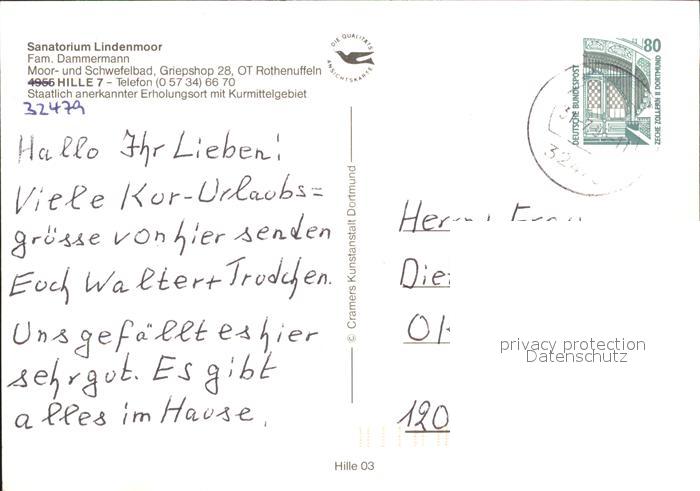 Sanatorium Lindenmoor
Fam. Dammermann
Moor- und Schwefelbad, Griepshop 28, OT Rothenuffeln
4955 HILLE 7 – Telefon (0 57 34) 66 70
Staatlich anerkannter Erholungsort mit Kurmittelgebiet
32479
DIE QUALITÄTS
ANSICHTSKARTE
80
DEUTSCHE BUNDESPOST
ZECHE ZOLLERN II DORTMUND
Hallo Ihr Lieben!
Viele Kur-Urlaubs=
grüsse von hier senden
Euch Walter + Trudchen.
Uns gefällt es hier
sehr gut. Es gibt
alles im Hause.
© Cramers Kunstanstalt Dortmund
Herrn Frau
120
privacy protection
Datenschutz
Hille 03